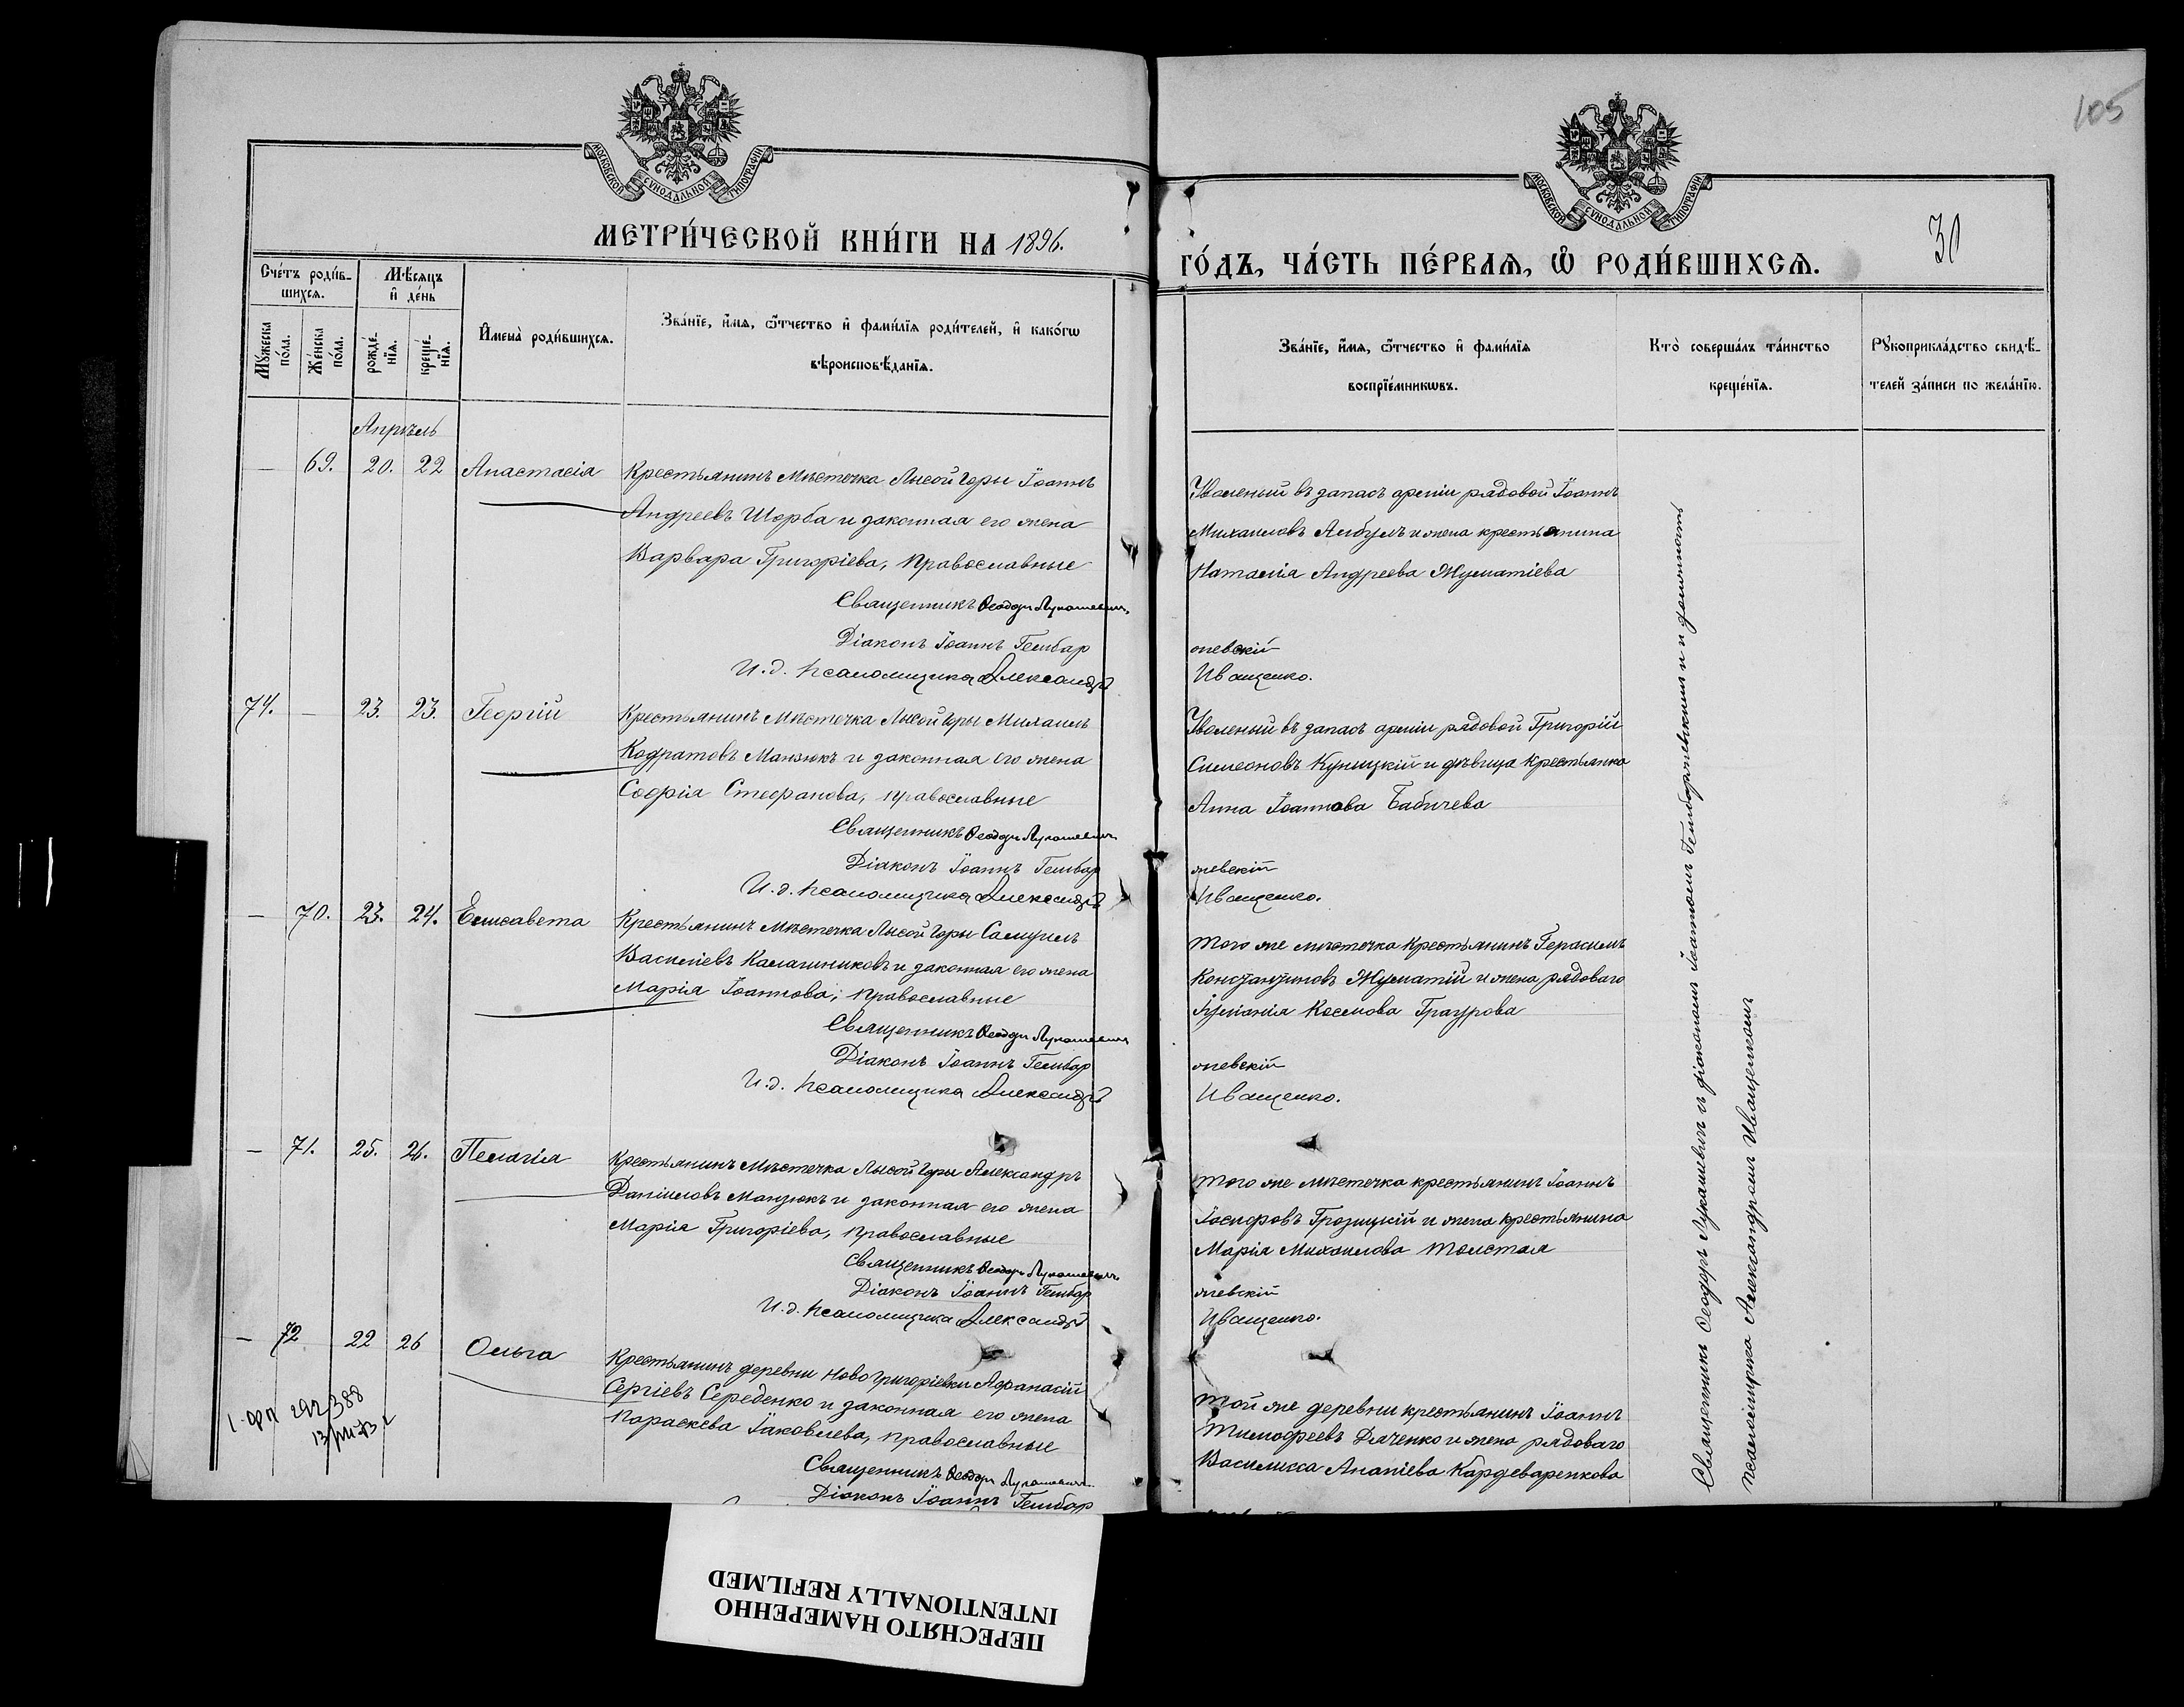 105
МОСКОВСКОЙ СѴНОДАЛЬНОЙ ТИПОГРАФІИ
МОСКОВСКОЙ СѴНОДАЛЬНОЙ ТИПОГРАФІИ
МЕТРИ́ЧЕСКОЙ КНИ́ГИ НА 1896.
ГО́ДЪ, ЧА́СТЬ ПЕ́РВАЯ, Ѽ РОДИ́ВШИХСЯ.
30
Сче́тъ роди́в-
шихся.
Мѣ́сяцъ
и҆ де́нь
Мꙋ́жеска
по́ла.
Же́нска
по́ла.
рожде́-
нїя.
креще́-
нїя.
И҆мена̀ роди́вшихся.
Зва́нїе, и҆́мя, ѻ҆́тчество и҆ фами́лїя роди́телей, и҆ како́гѡ
вѣроисповѣ́данїя.
Зва́нїе, и҆́мя, ѻ҆́тчество и҆ фами́лїя
воспрїе́мникѡвъ.
Кто̀ соверша́лъ та́инство
креще́нїя.
Рꙋкоприкла́дство свидѣ́-
телей за́писи по жела́нїю.
Апрѣль
— 69. 20. 22 Анастасія Крестьянинъ Мѣстечка Лысой Горы Іоаннъ
Андреевъ Щорба и законная его жена
Варвара Григоріева, православные
Священникъ Ѳеодоръ Лукашевичъ
Діаконъ Іоаннъ Гембар
И.д. псаломщика Александръ
Уволеный въ запасъ арміи рядовой Іоаннъ
Михаиловъ Амбулъ и жена крестьянина
Наталія Андреева Жуматіева
жевскій
Иващенко.
74. — 23. 23. Георгій Крестьянинъ Мѣстечка Лысой Горы Михаилъ
Кодратовъ Манзюкъ и законная его жена
Софія Стефанова, православные
Священникъ Ѳеодоръ Лукашевичъ
Діаконъ Іоаннъ Гембар
И.д. псаломщика Александръ
Уволеный въ запасъ арміи рядовой Григорій
Симеоновъ Куницкій и дѣвица крестьянка
Анна Іоаннова Бабичева
жевскій
Иващенко.
— 70. 23. 24. Елисавета Крестьянинъ Мѣстечка Лысой Горы Самуилъ
Василіевъ Калашниковъ и законная его жена
Марія Іоаннова, православные
Священникъ Ѳеодоръ Лукашевичъ
Діаконъ Іоаннъ Гембар
И.д. псаломщика Александръ
Того же мѣстечка крестьянинъ Герасимъ
Константиновъ Жуматій и жена рядоваго
Іуліанія Космова Трагурова
жевскій
Иващенко.
— 71. 25. 26. Пелагія Крестьянинъ Мѣстечка Лысой Горы Александръ
Даніиловъ Манзюкъ и законная его жена
Марія Григоріева, православные
Священникъ Ѳеодоръ Лукашевичъ
Діаконъ Іоаннъ Гембар
И.д. псаломщика Александръ
Того же мѣстечка крестьянинъ Іоаннъ
Іосифовъ Грозицкій и жена крестьянина
Марія Михаилова Толстая
жевскій
Иващенко.
— 72 22 26 Ольга Крестьянинъ деревни Новогригоріевки Афанасій
Сергіевъ Середенко и законная его жена
Параскева Іаковлева, православные
Священникъ Ѳеодоръ Лукашевичъ
Діаконъ Іоаннъ Гембар
Той же деревни крестьянинъ Іоаннъ
Тимофеевъ Дяченко и жена рядоваго
Василисса Ананіева Кардеваренкова
Священникъ Ѳеодоръ Лукашевичъ съ діакономъ Іоанномъ Гембаржевскимъ и
псаломщика Александромъ Иващенкомъ
ПЕРЕСНЯТО НАМЕРЕННО
INTENTIONALLY REFILMED